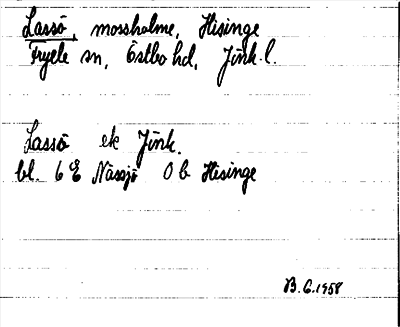 Lassö, mossholme, Hisinge
Fryele sn, Östbo hd, Jönk. l.
Lassö ek Jönk.
bl. 6E Nässjö 0 b Hisinge
B.G. 1958